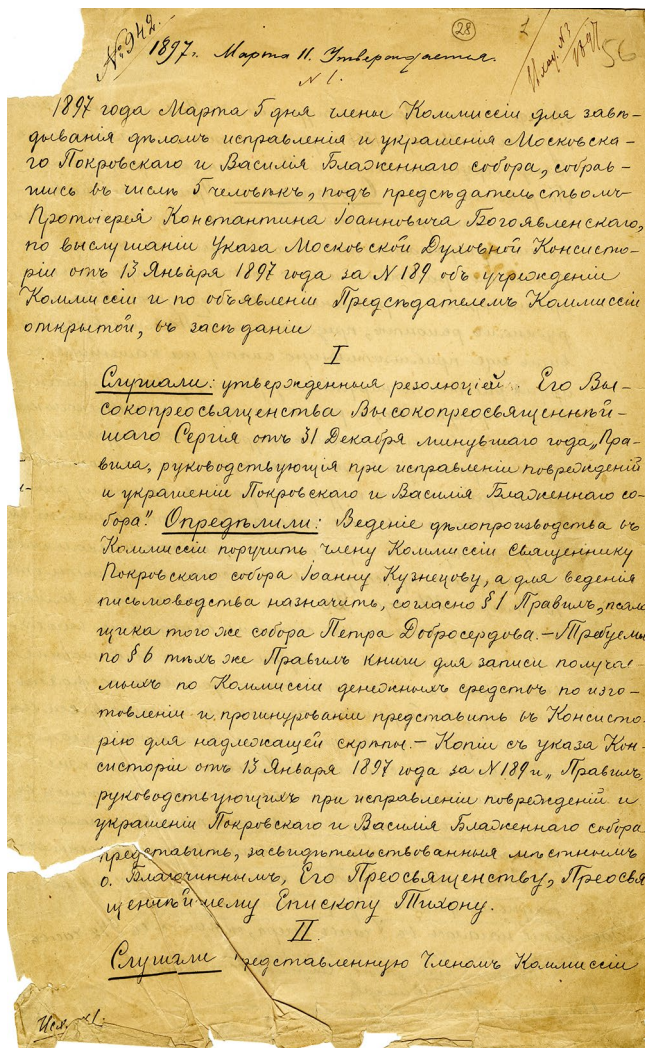 № 942.
28
1897 г. Марта 11. Утверждается.
1897
56
N 1.
1897 года Марта 5 дня члены Коммиссіи для завѣ-
дыванія дѣломъ исправленія и украшенія Московска-
го Покровскаго и Василія Блаженнаго собора, собрав-
шись въ числѣ 5 человѣкъ, подъ предсѣдательствомъ
Протоіерея Константина Іоанновича Богоявленскаго,
по выслушаніи Указа Московской Духовной Консисто-
ріи отъ 13 Января 1897 года за N 189 объ учрежденіи
Коммиссіи и по объявленіи Предсѣдателемъ Коммиссіи
открытой, въ засѣданіи
I
Слушали: утвержденныя резолюціей Его Вы-
сокопреосвященства Высокопреосвященнѣй-
шаго Сергія отъ 31 Декабря минувшаго года „Пра-
вила, руководствующія при исправленіи поврежденій
и украшеніи Покровскаго и Василія Блаженнаго со-
бора". Опредѣлили: Веденіе дѣлопроизводства въ
Коммиссіи поручить члену Коммиссіи Священнику
Покровскаго собора Іоанну Кузнецову, а для веденія
письмоводства назначить, согласно § 1 Правилъ, псалом
щика того же собора Петра Добросердова. – Требуемыя
по § 6 тѣхъ же Правилъ книги для записи получае-
мыхъ по Коммиссіи денежныхъ средствъ по изго-
товленіи и прошнурованіи представить въ Консисто-
рію для надлежащей скрѣпы. – Копіи съ указа Кон-
систоріи отъ 13 Января 1897 года за N 189 и „Правилъ,
руководствующихъ при исправленіи поврежденій и
украшеніи Покровскаго и Василія Блаженнаго собора
представить, засвидѣтельствованныя мѣстнымъ
о. Благочиннымъ, Его Преосвященству, Преосвя
щеннѣйшему Епископу Тихону.
II.
Слушали редставленную Членомъ Коммиссіи